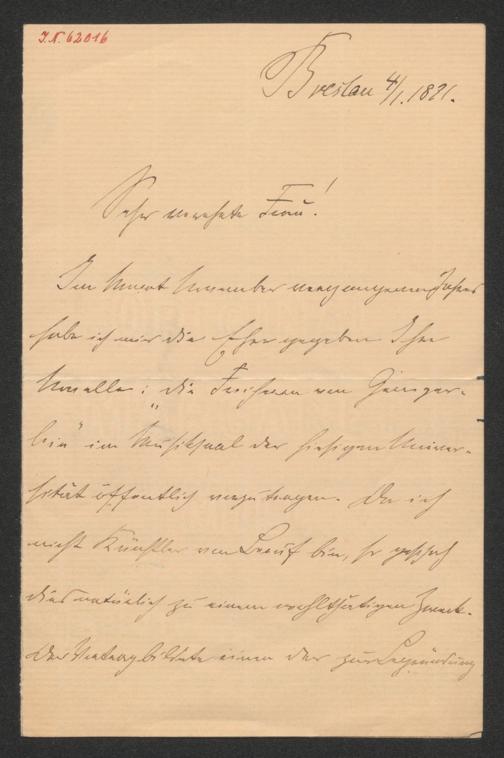 J.N. 62016
Breslau 4/1. 1891.
Sehr verehrte Frau!
Im Monat November vergangenen Jahres
habe ich mir die Ehre gegeben Ihre
Novelle: „Die Freiherren von Gemper-
lein“ im Musiksaal der hiesigen Univer-
sität öffentlich vorzutragen. Da ich
nicht Künstler von Beruf bin, so geschah
dies natürlich zu einem wohlthätigen Zweck.
Der Vortrag bildete einen der zur Begründung